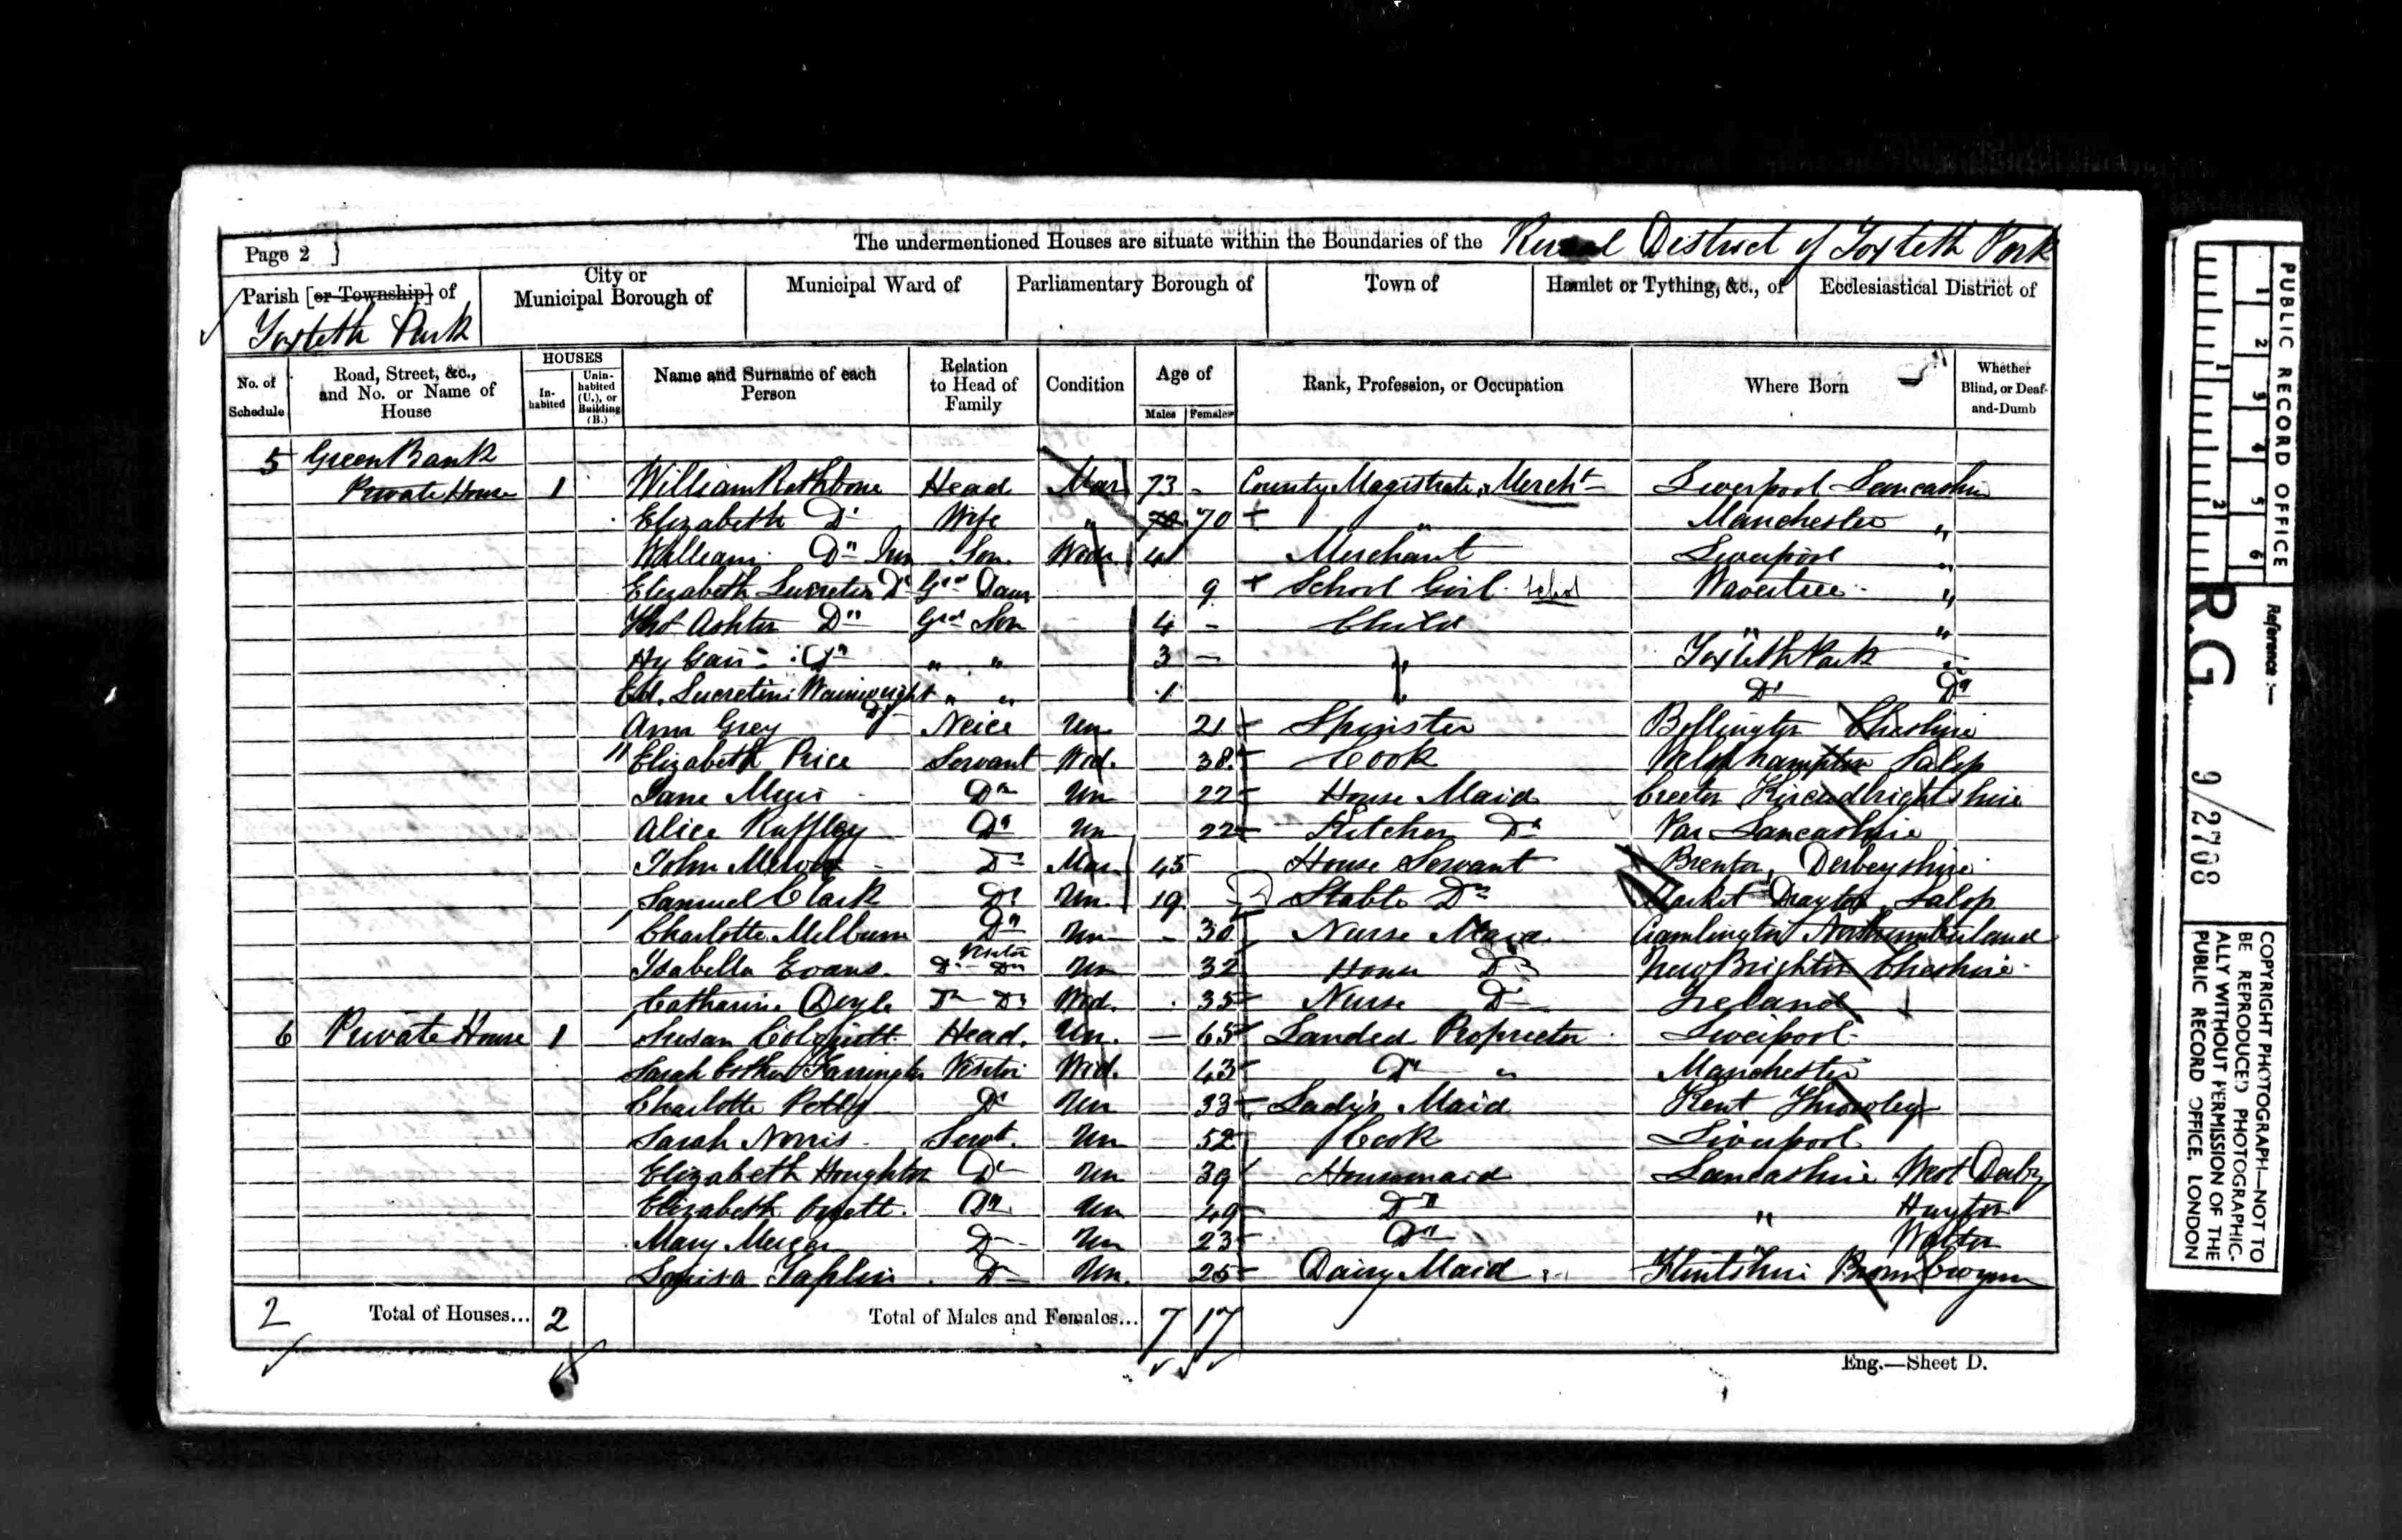 Page 2 } The undermentioned Houses are situate within the Boundaries of the Rural District of Toxteth Park
Parish [or Township] of Toxteth Park
City or Municipal Borough of
Municipal Ward of
Parliamentary Borough of
Town of
Hamlet or Tything, &c., of
Ecclesiastical District of
No. of Schedule
Road, Street, &c., and No. or Name of House
HOUSES
Inhabited
Uninhabited (U.), or Building (B.)
Name and Surname of each Person
Relation to Head of Family
Condition
Age of
Males Females
Rank, Profession, or Occupation
Where Born
Whether Blind, or Deaf-and-Dumb
5 Green Bank
Private House 1 William Rathbone Head Mar 73 - County Magistrate & Mercht Liverpool Lancashire
Elizabeth Do Wife " 70 70 + " Manchester "
William Do Jun Son Widr 41 Merchant Liverpool "
Elizabeth Lucretia Do Grd Daur 9 + School Girl Schol Wavertree "
Thos Ashton Do Grd Son 4 - Child " "
Hy Do " " 3 - " Toxteth Park "
Lucretius Wainwright Do " " 1 " Do Do
Ann Greg Neice Un 21 Spinster Bollington Cheshire
Elizabeth Price Servant Wid. 38 Cook Welshhampton Salop
Jane Do Un 22 House Maid Creeton Kircudbrightshire
Alice Do Un 22 Kitchen Do Par Lancashire
John Do Mar 45 House Servant Derbeyshire
Samuel Clark Do Un. 19 Stable Do Market Drayton Salop
Charlotte Melburn Do Un - 30 Nurse Maid Cramlington Northumberland
Isabella Evans. Do Visitor Do Un 32 House Do New Brighton Cheshire
Catharine Doyle Do Do Wid. 35 Nurse Do Ireland
6 Private House 1 Susan Colquitt Head. Un. - 65 Landed Proprietor Liverpool
Sarah Esther Farrington Visitor Wid. 43 Do " Manchester
Charlotte Petty Do Un 33 Lady's Maid Kent Throwley
Sarah Norris Servt. Un 52 Cook Liverpool
Elizabeth Houghton Do Un 39 Housemaid Lancashire West Derby
Elizabeth Do Un 49 Do " Huyton
Mary Do Un 23 Do " Walton
Louisa Taplin Do Un. 25 Dairy Maid Flintshire
2 Total of Houses... 2 Total of Males and Females... 7 17
Eng.—Sheet D.
PUBLIC RECORD OFFICE
1 2 3 4 5 6
1 2
Reference :—
R.G. 9/2708
COPYRIGHT PHOTOGRAPH—NOT TO
BE REPRODUCED PHOTOGRAPHIC-
ALLY WITHOUT PERMISSION OF THE
PUBLIC RECORD OFFICE, LONDON